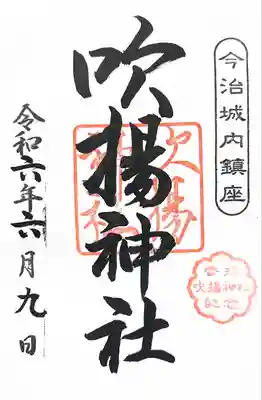 今治城内鎮座
吹揚神社
吹揚
神社
令和六年六月九日
吹揚神社
記念